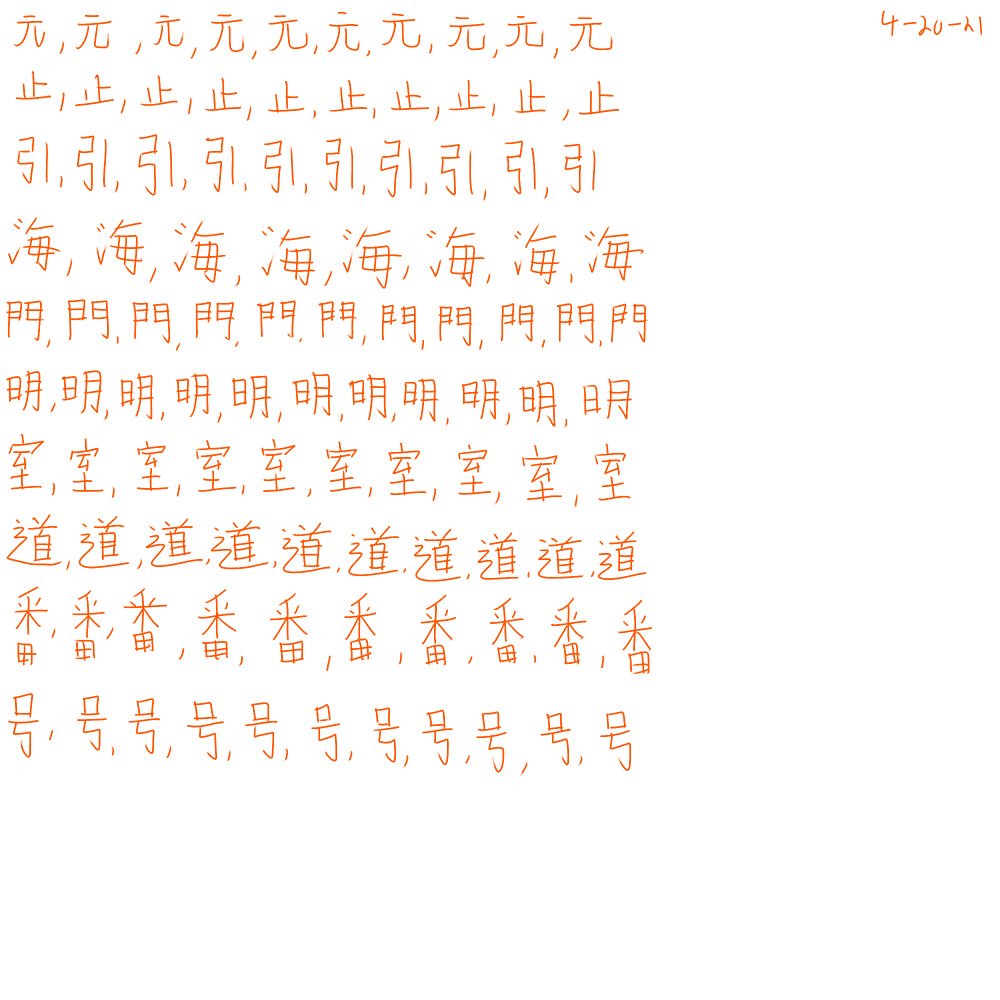 元, 元, 元, 元, 元, 元, 元, 元, 元, 元 4-20-21
止, 止, 止, 止, 止, 止, 止, 止, 止, 止
引, 引, 引, 引, 引, 引, 引, 引, 引, 引
海, 海, 海, 海, 海, 海, 海, 海
門, 門, 門, 門, 門, 門, 門, 門, 門, 門, 門
明, 明, 明, 明, 明, 明, 明, 明, 明, 明, 明
室, 室, 室, 室, 室, 室, 室, 室, 室, 室
道, 道, 道, 道, 道, 道, 道, 道, 道, 道
番, 番, 番, 番, 番, 番, 番, 番, 番, 番
号, 号, 号, 号, 号, 号, 号, 号, 号, 号, 号